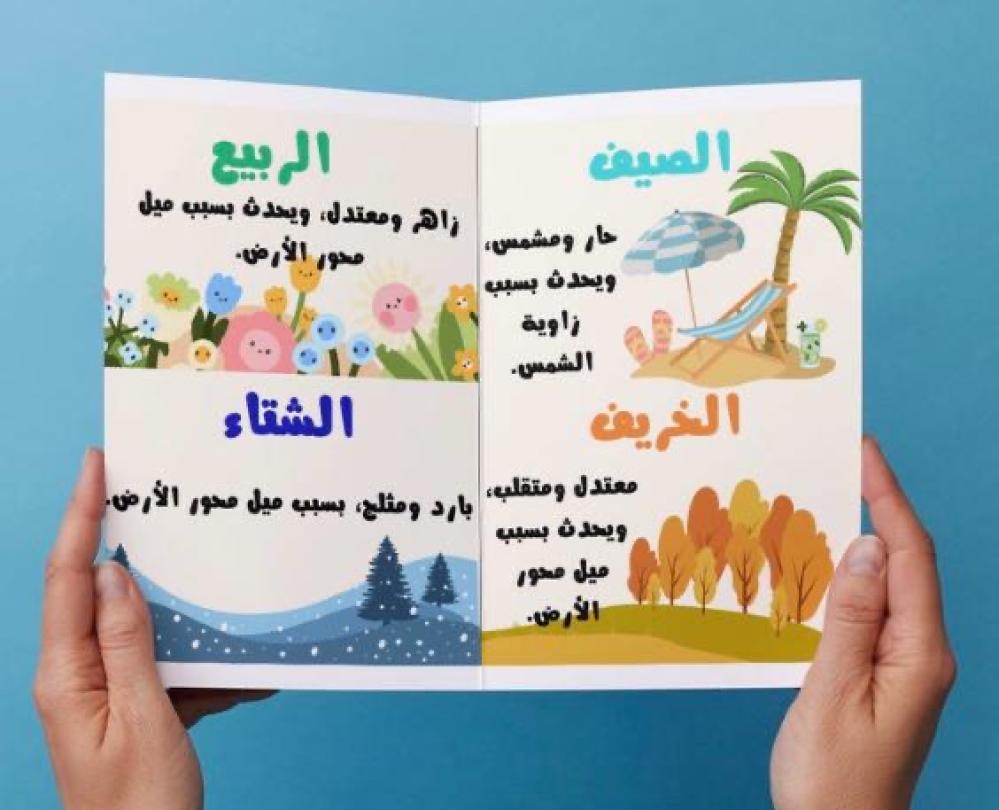 الصيف
حار ومشمس،
ويحدث بسبب
زاوية
الشمس.
الخريف
معتدل ومتقلب،
ويحدث بسبب
ميل محور
الأرض.
الربيع
زاهر ومعتدل، ويحدث بسبب ميل
محور الأرض.
الشتاء
بارد ومثلج، بسبب ميل محور الأرض.